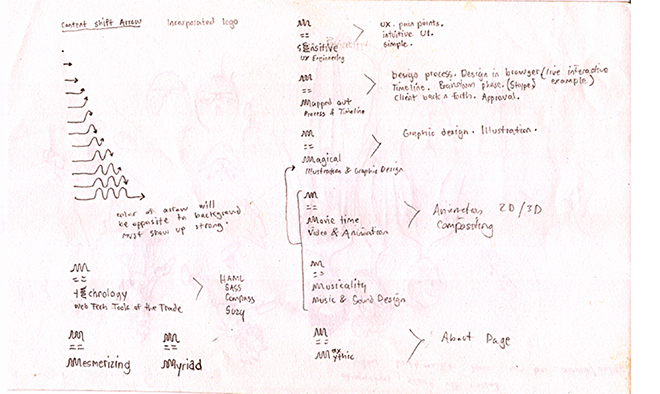 Content Shift Arrow
Incorporated logo
color of arrow will
be opposite to background
must show up strong.
Technology
Web Tech Tools of the Trade
HAML
SASS
Compass
Suzy
Mesmerizing
Myriad
Sensitive
UX Engineering
UX. pain points.
intuitive UI.
simple.
Mapped out
Process & Timeline
Design process. Design in browser (live interactive
Timeline. Brainstorm phase. (Skype) example)
Client back n forth. Approval.
Magical
Illustration & Graphic Design
Graphic design. Illustration.
Movie time
Video & Animation
Animation 2D/3D
Compositing
Musicality
Music & Sound Design
Mythic
About Page